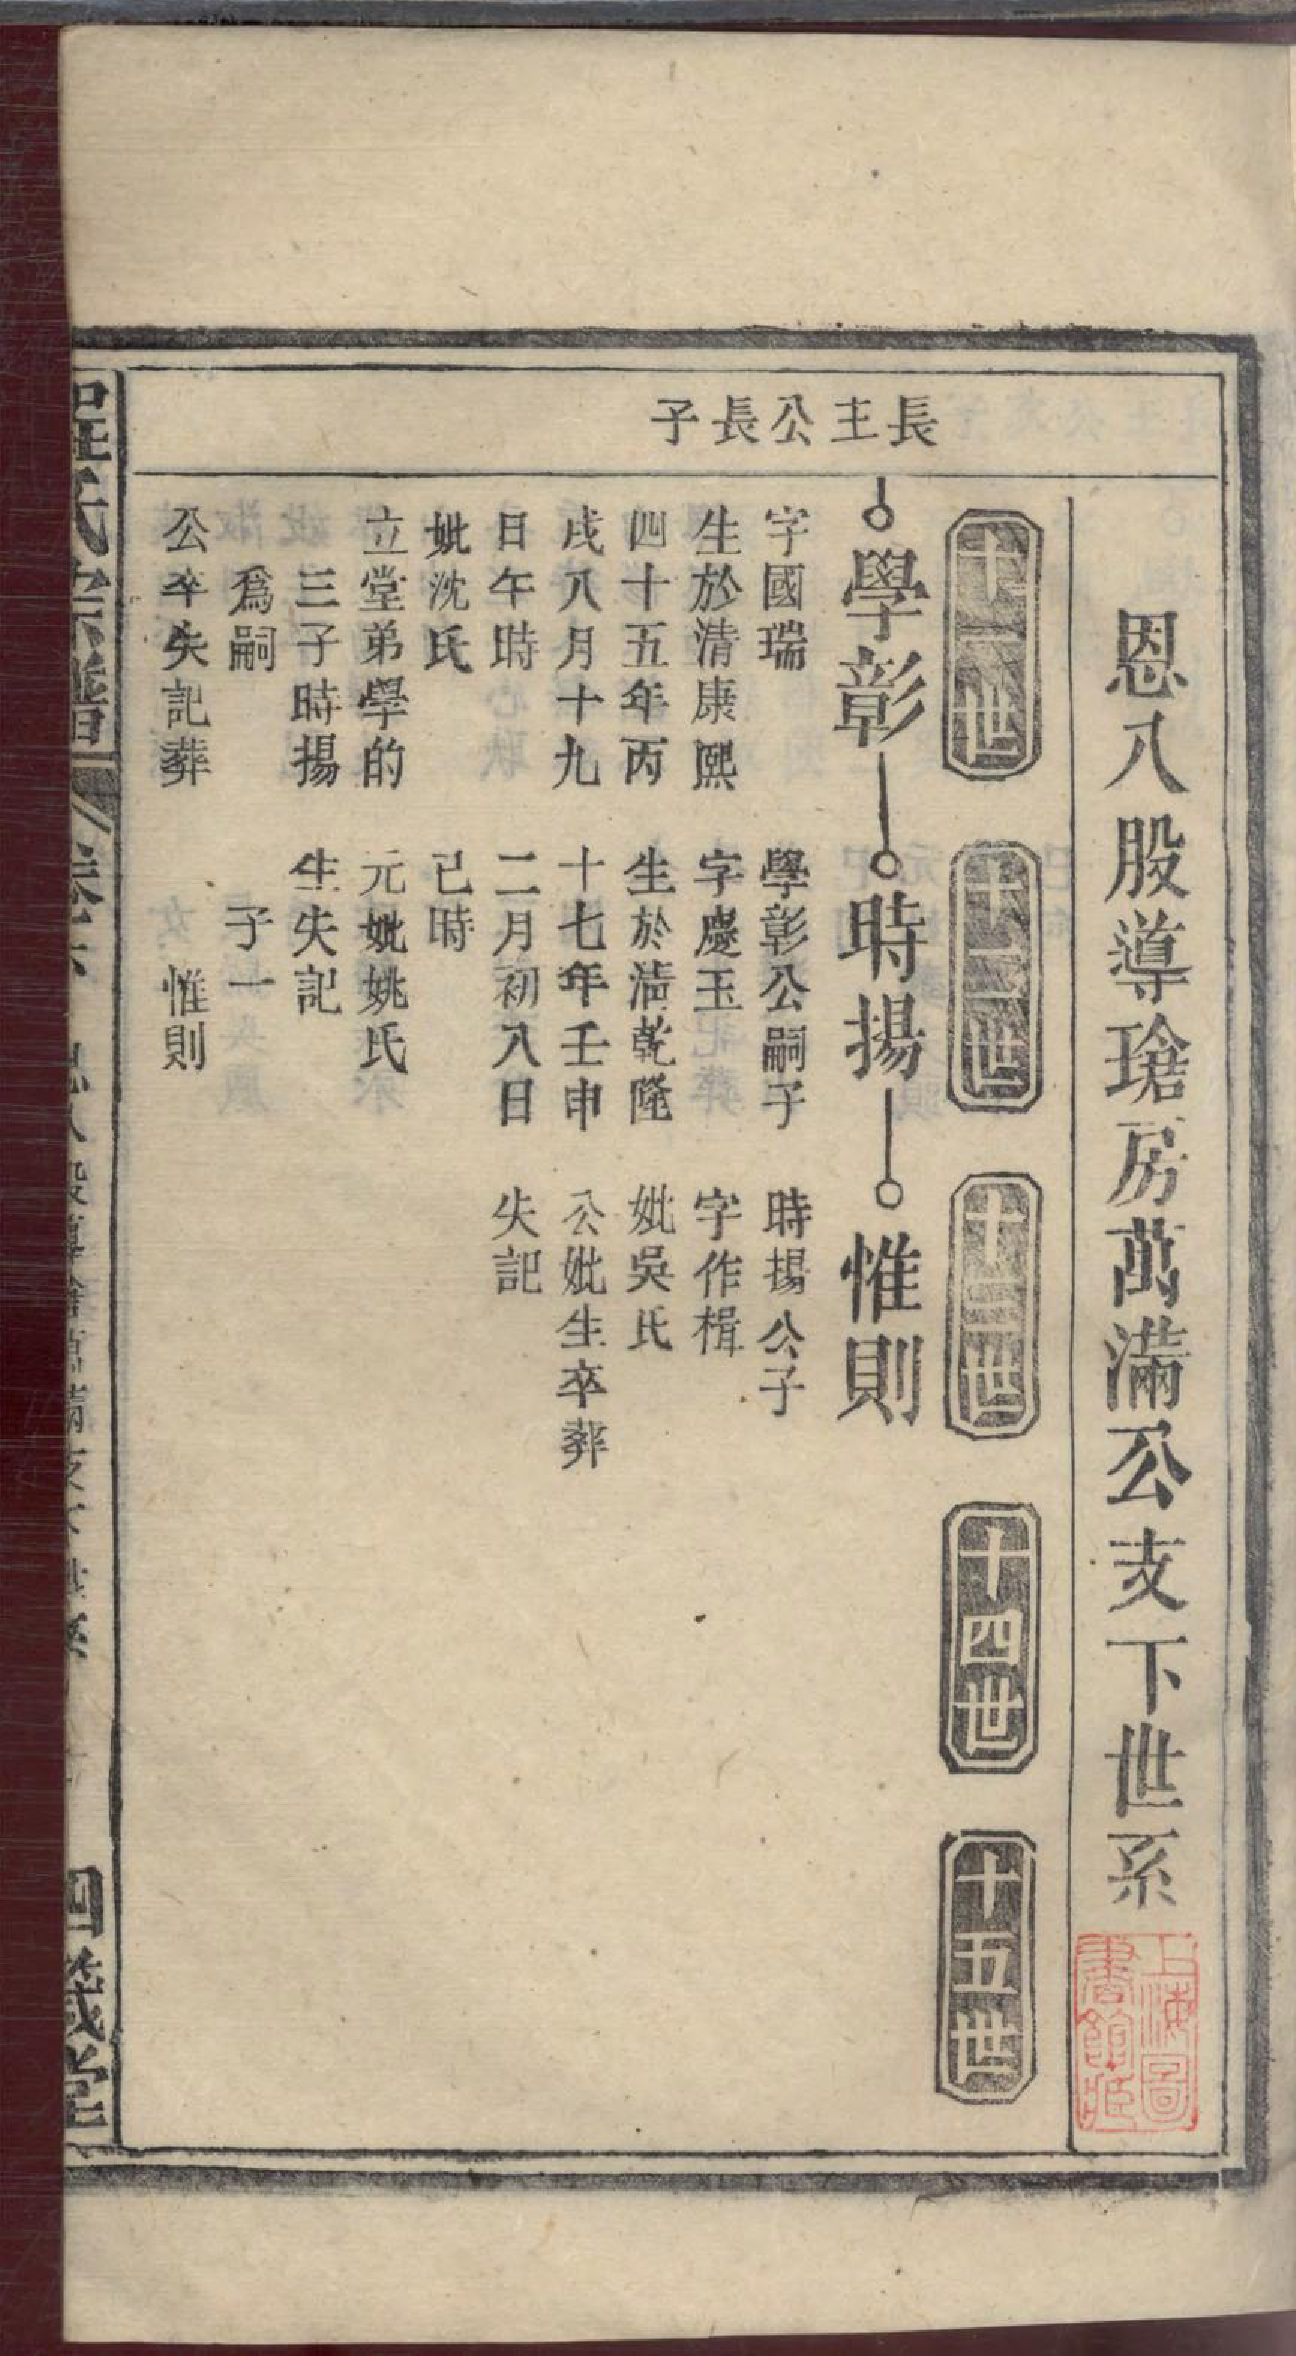 恩八股導瑲房萬滿公支下世系
上海圖書館藏
十一世
十二世
十三世
十四世
十五世
長主公長子
學彰
時揚
惟則
字國瑞
生於清康熙
四十五年丙
戌八月十九
日午時
妣沈氏
立堂弟學的
三子時揚
爲嗣
公卒失記葬
學彰公嗣子
字慶玉
生於清乾隆
十七年壬申
二月初八日
巳時
元妣姚氏
生失記
子一
惟則
時揚公子
字作楫
妣吳氏
公妣生卒葬
失記
程氏宗譜
恩八股導瑲萬滿支下世系
四箴堂